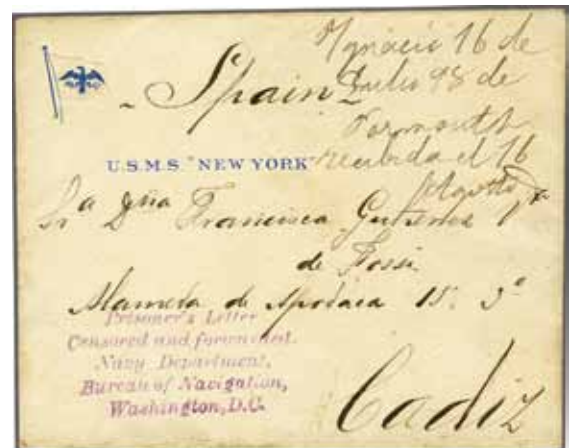 Ignacio 16 de
Julio 98 de
Spain
Portsmouth
recibida el 16
Agosto
U.S.M.S. "NEW YORK"
Sra Dña Francisca Gutierrez
de Fossi
Alameda de Apodaca 15. 3º
Prisoner's Letter
Censored and forwarded.
Navy Department,
Bureau of Navigation,
Washington, D.C.
Cadiz